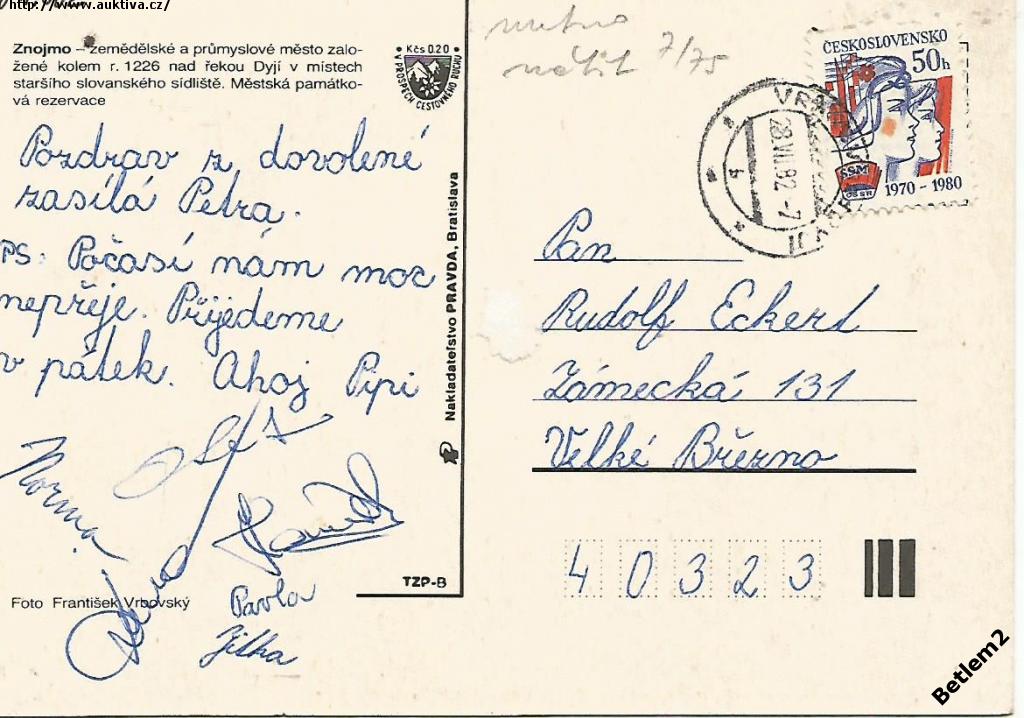 http://www.auktiva.cz/
Znojmo – zemědělské a průmyslové město zalo-
žené kolem r. 1226 nad řekou Dyjí v místech
staršího slovanského sídliště. Městská památko-
vá rezervace
Kčs 0.20
V PROSPĚCH CESTOVNÉHO RUCHU
Pozdrav z dovolené
zasílá Petra.
PS: Počasí nám moc
nepřeje. Přijedeme
v pátek. Ahoj Pipi
Norma
Pavla
Jitka
Foto František Vrbovský
TZP-B
Nakladateľstvo PRAVDA, Bratislava
7/75
ČESKOSLOVENSKO
50h
SSM
1970 – 1980
28.VII.82.-7
Pan
Rudolf Eckert
Zámecká 131
Velké Březno
40323
Betlem2